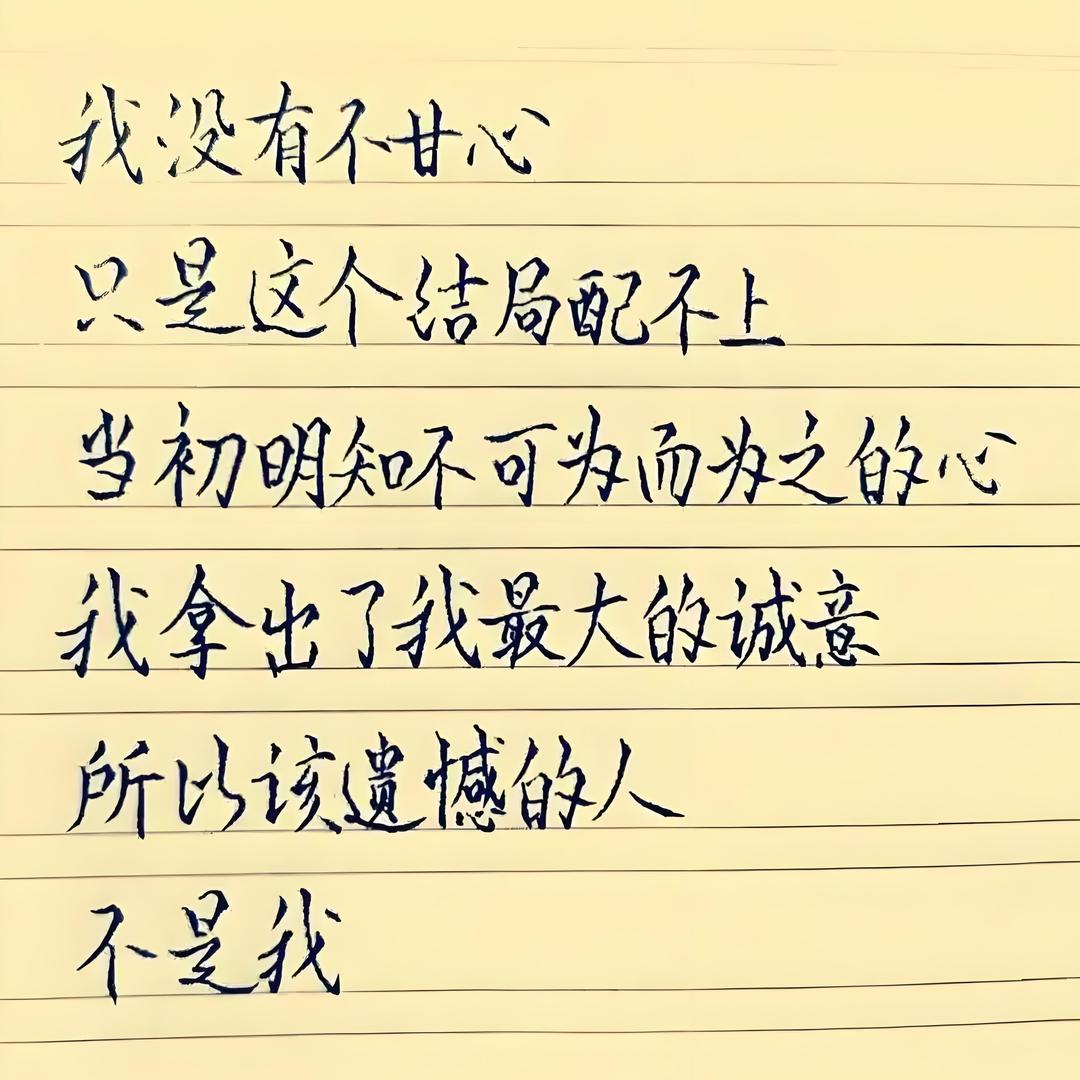 我没有不甘心
只是这个结局配不上
当初明知不可为而为之的心
我拿出了我最大的诚意
所以该遗憾的人
不是我